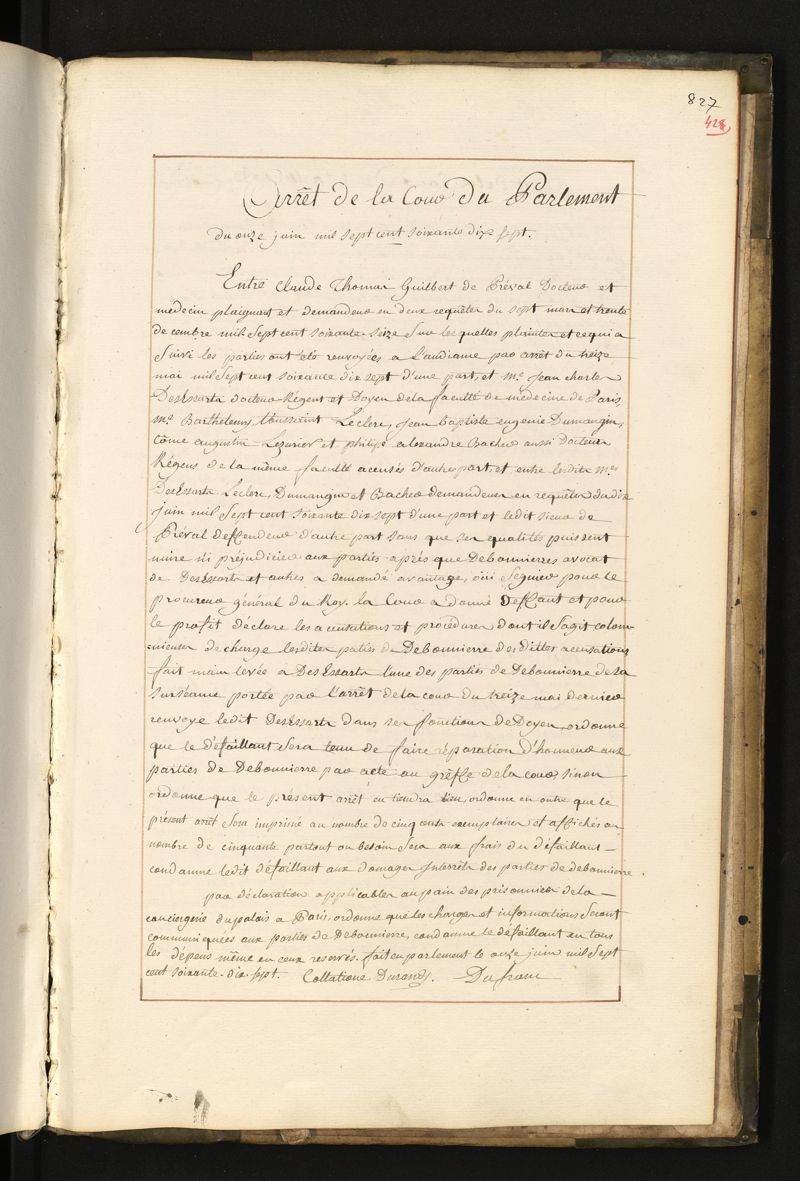 827
428
Arrêt de la Cour du Parlement
du onze juin mil sept cent soixante dix sept.
Entre Claude Thomas Guilbert de Préval Docteur et
medecin plaignant et demandeur en deux requêtes du sept mars et trente
decembre mil sept cent soixante seize sur lesquelles plaintes et ce qui a
suivi les parties ont été renvoyées a l'audiance par arrêt du treize
mai mil sept cent soixante dix sept d'une part, et Me. Jean charles
DesEssarts docteur Régent et Doyen de la faculté de médecine de Paris,
Me. Barthelemy toussaint Leclerc, Jean baptiste eugenie Dumangin,
Côme augustin Lezurier et philipe alexandre Bacher aussi Docteurs
Régens de la même faculté accusés d'autre part, et entre lesdits Mes.
DesEssarts Leclerc, Dumangin et Bacher demandeurs en requêtes du dix
juin mil sept cent soixante dix sept d'une part et ledit sieur de
Préval deffendeur d'autre part sans que les qualités puissent
nuire ni préjudicier aux parties après que Debonnierres avocat
de DesEssarts et autres a demandé avantage, oüi Seguier pour le
procureur général du Roy. la Cour a donné deffaut et pour
le profit déclare les accusations et procédures dont il s'agit calom
-nieuses décharge lesdites paties de Debonnierre des dittes accusations
fait main levée a DesEssarts l'une des parties de Debonnierre de la
surséance portée par l'arrêt de la cour du treize mai dernier
renvoye ledit DesEssarts dans ses fonctions de Doyen, ordonne
que le défaillant sera tenu de faire réparation d'honneur aux
parties de Debonnierre par acte au greffe de la cour sinon
ordonne que le présent arrêt en tiendra lieu, ordonne en outre que le
présent arrêt sera imprimé au nombre de cinq cents exemplaires et affichés au
nombre de cinquante partout ou besoin sera aux frais du défaillant
condamne ledit défaillant aux domages Interrêts des parties de debonnierre
par déclaration applicables au pain des prisonniers de la
conciergerie du palais a Paris, ordonne que les charges et informations seront
communiquées aux parties de Debonnierre, condamne le défaillant en tous
les dépens même en ceux reservés. fait en parlement le onze juin mil sept
cent soixante-dix sept. Collationé Durand. Dufranc